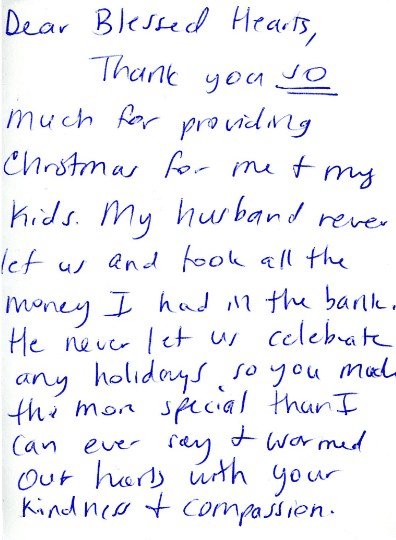 Dear Blessed Hearts,
Thank you so
much for providing
Christmas for me + my
kids. My husband never
let us and took all the
money I had in the bank.
He never let us celebrate
any holidays, so you made
this more special than I
can ever say + warmed
our hearts with your
kindness + compassion.